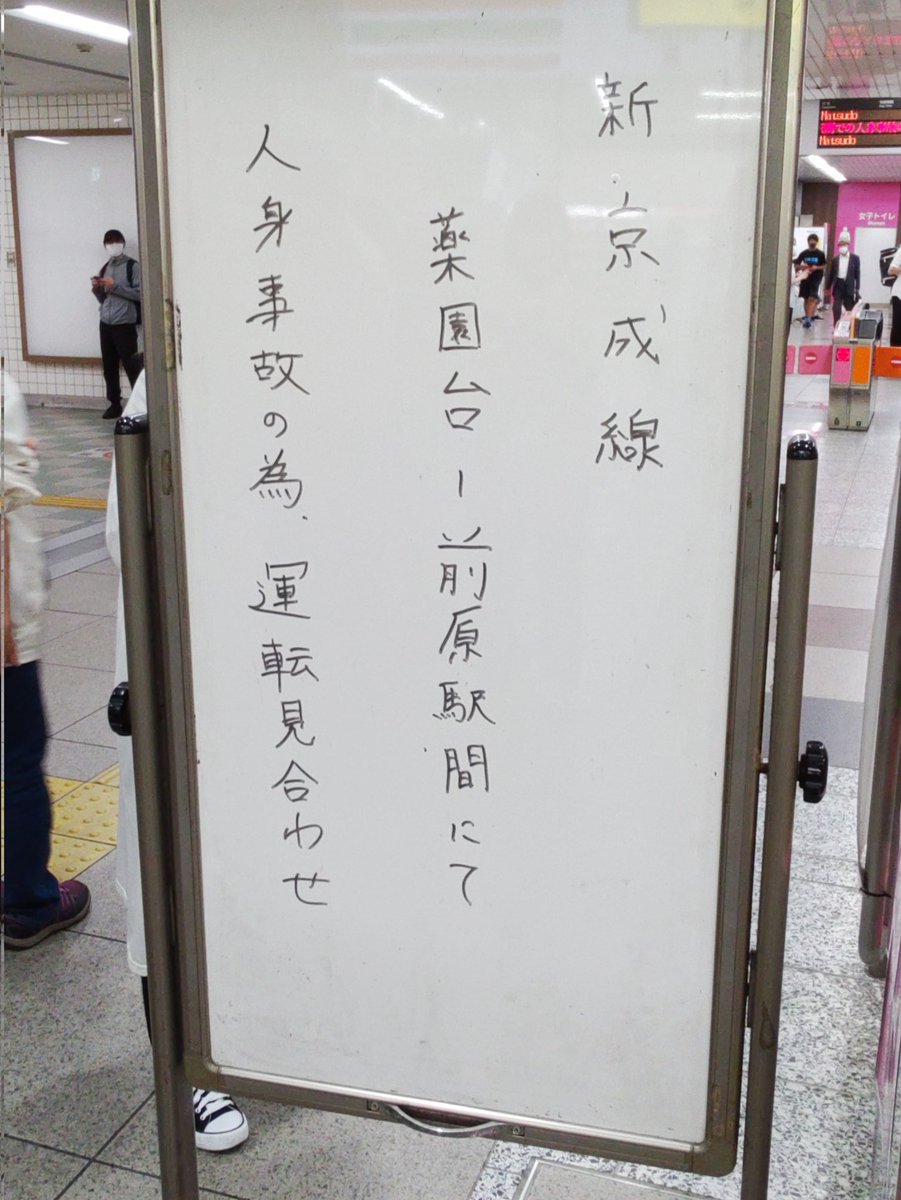 新京成線
薬園台ー前原駅間にて
人身事故の為、運転見合わせ
Matsudo
Matsudo
女子トイレ
Women